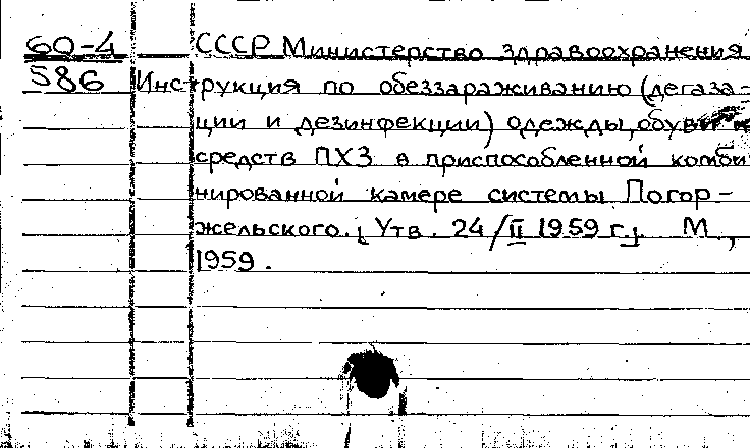 60-4 СССР Министерство здравоохранения
586 Инструкция по обеззараживанию (дегаза-
ции и дезинфекции) одежды, обуви и
средств ПХЗ в приспособленной комби
нированной камере системы Погор-
жельского. [Утв. 24/II 1959 г.]. М.,
1959.